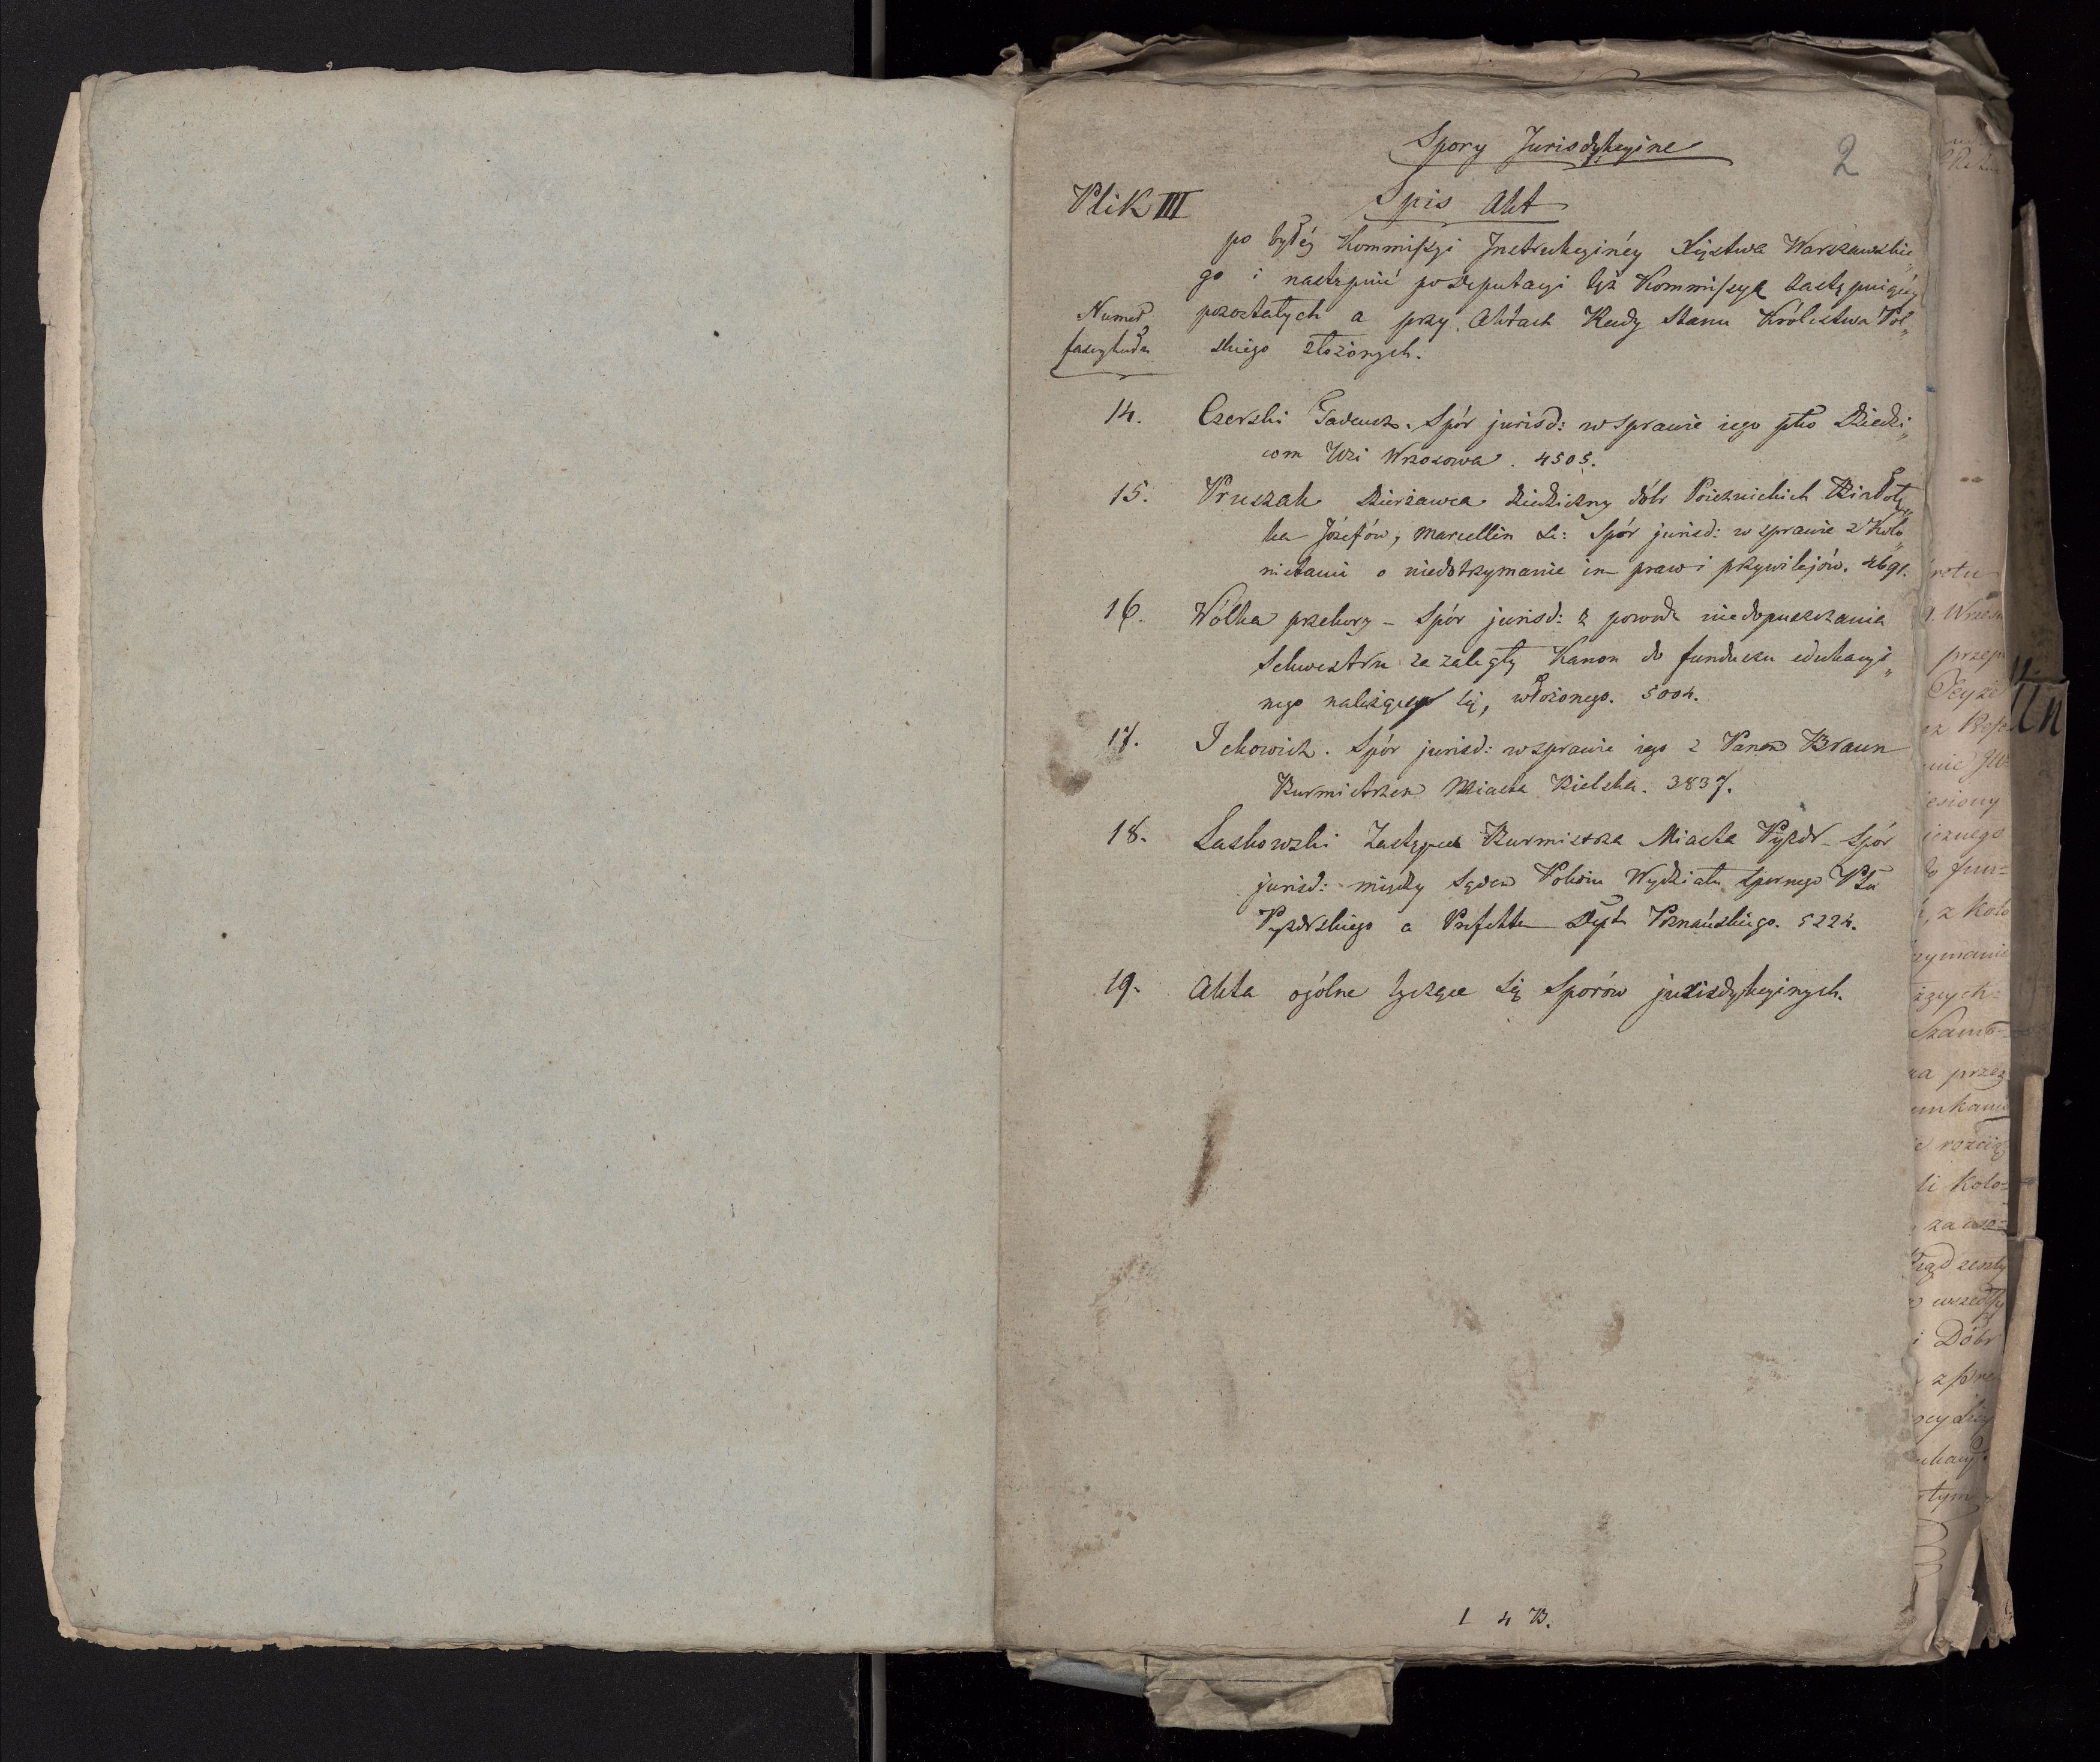 Spory Jurisdykcyine
2
Plik III
Spis Akt
po byłéy Kommissyi Instrukcyinéy Xięstwa Warszawskie„
go i następnie po Deputacyi tęż Kommissyą zastępuiącéy
pozostałych a przy Aktach Rady Stanu Królestwa Pol„
skiego złożonych.
Numer
fascykułu
14. Czerski Tadeusz. Spór jurisd: w sprawie iego pko Dziedzi„
com Wsi Wrzosowa. 4505.
15. Pruszak Dzierżawca dziedziczny dóbr
ka Józefów, Marcellin Spór jurisd: w sprawie z Kolo„
nistami o niedotrzymanie im praw i przywilejów. 4691.
16. Wólka przekory – Spór jurisd: z powodu niedopuszczania
Sekwestru za zaległy Kanon do funduszu edukacyi„
nego należący się, włożonego. 5004.
17. Ickowicz. Spór jurisd: w sprawie iego z Panem Braun
Burmistrzem Miasta Bielska. 3837.
18. Laskowski Zastępca Burmistrza Miasta Pyzdr – Spór
jurisd: między Sądem Pokoiu Wydziału Spornego Ptu
Pyzdrskiego a Prefektem Dept Poznańskiego. 5224.
19. Akta ogólne tyczące się Sporów jurisdykcyinych.
1 4 B.